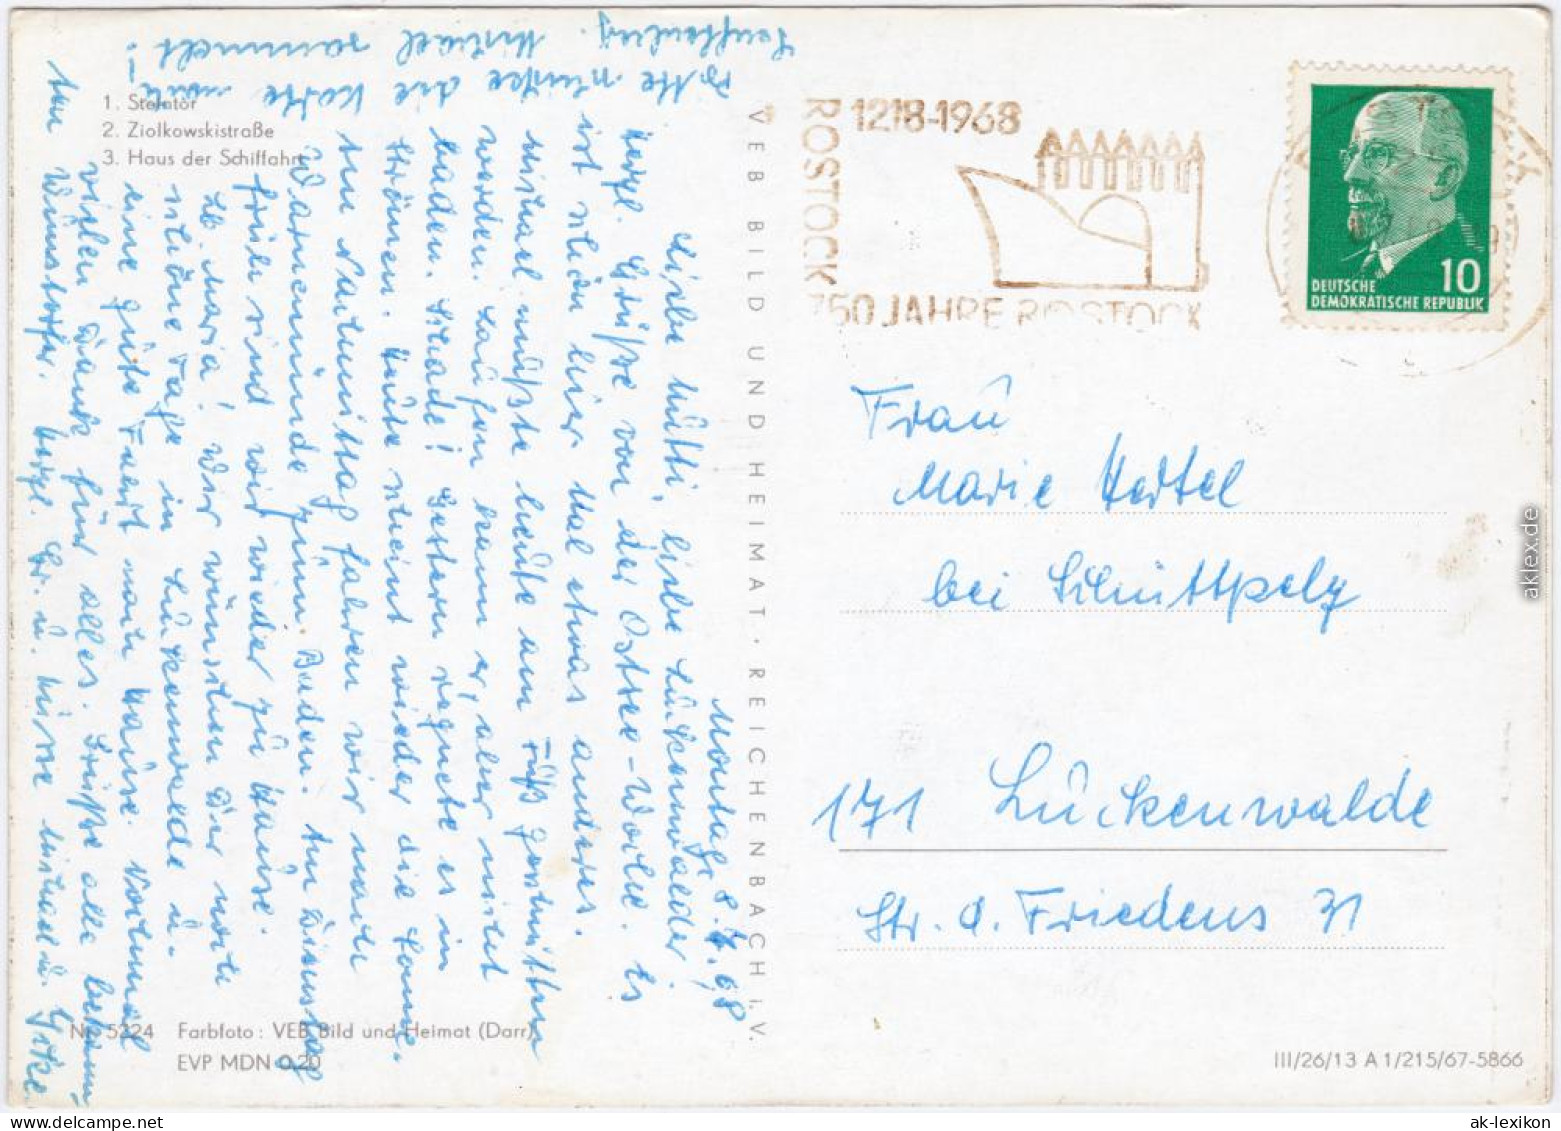 1. Steintor
2. Ziolkowskistraße
3. Haus der Schiffahrt
Montag, 8.7.68
Liebe Mutti, liebe Luckenwalder,
herzl. Grüße von der Ostsee-Woche. Es
ist schön hier mal etwas anderes.
Michael mußte heute am Fuß geschnitten
werden. Laufen kann er, aber nicht
baden. Schade! Gestern regnete es in
Strömen. Heute scheint wieder die Sonne.
Am Nachmittag fahren wir nach
Warnemünde zum Baden. Am Dienstag
früh sind wir wieder zu Hause.
Lb. Maria! Wir wünschen Dir noch
schöne Tage in Luckenwalde u.
eine gute Fahrt nach Hause. Nochmal
vielen Dank für alles. Grüße alle bekannten
Wünsdorfer. Herzl. Gr. u. Küsse Michael u.
Bitte schicke die Karte nach
Senftenberg. Michael sammelt!
Nr. 5224 Farbfoto: VEB Bild und Heimat (Darr)
EVP MDN 0,20
VEB BILD UND HEIMAT · REICHENBACH i. V.
ROSTOCK
1218-1968
750 JAHRE ROSTOCK
DEUTSCHE
DEMOKRATISCHE REPUBLIK
10
Frau
Marie Hertel
bei Schnittpelz
171 Luckenwalde
Str. d. Friedens 31
III/26/13 A 1/215/67-5866
aklex.de
ak-lexikon